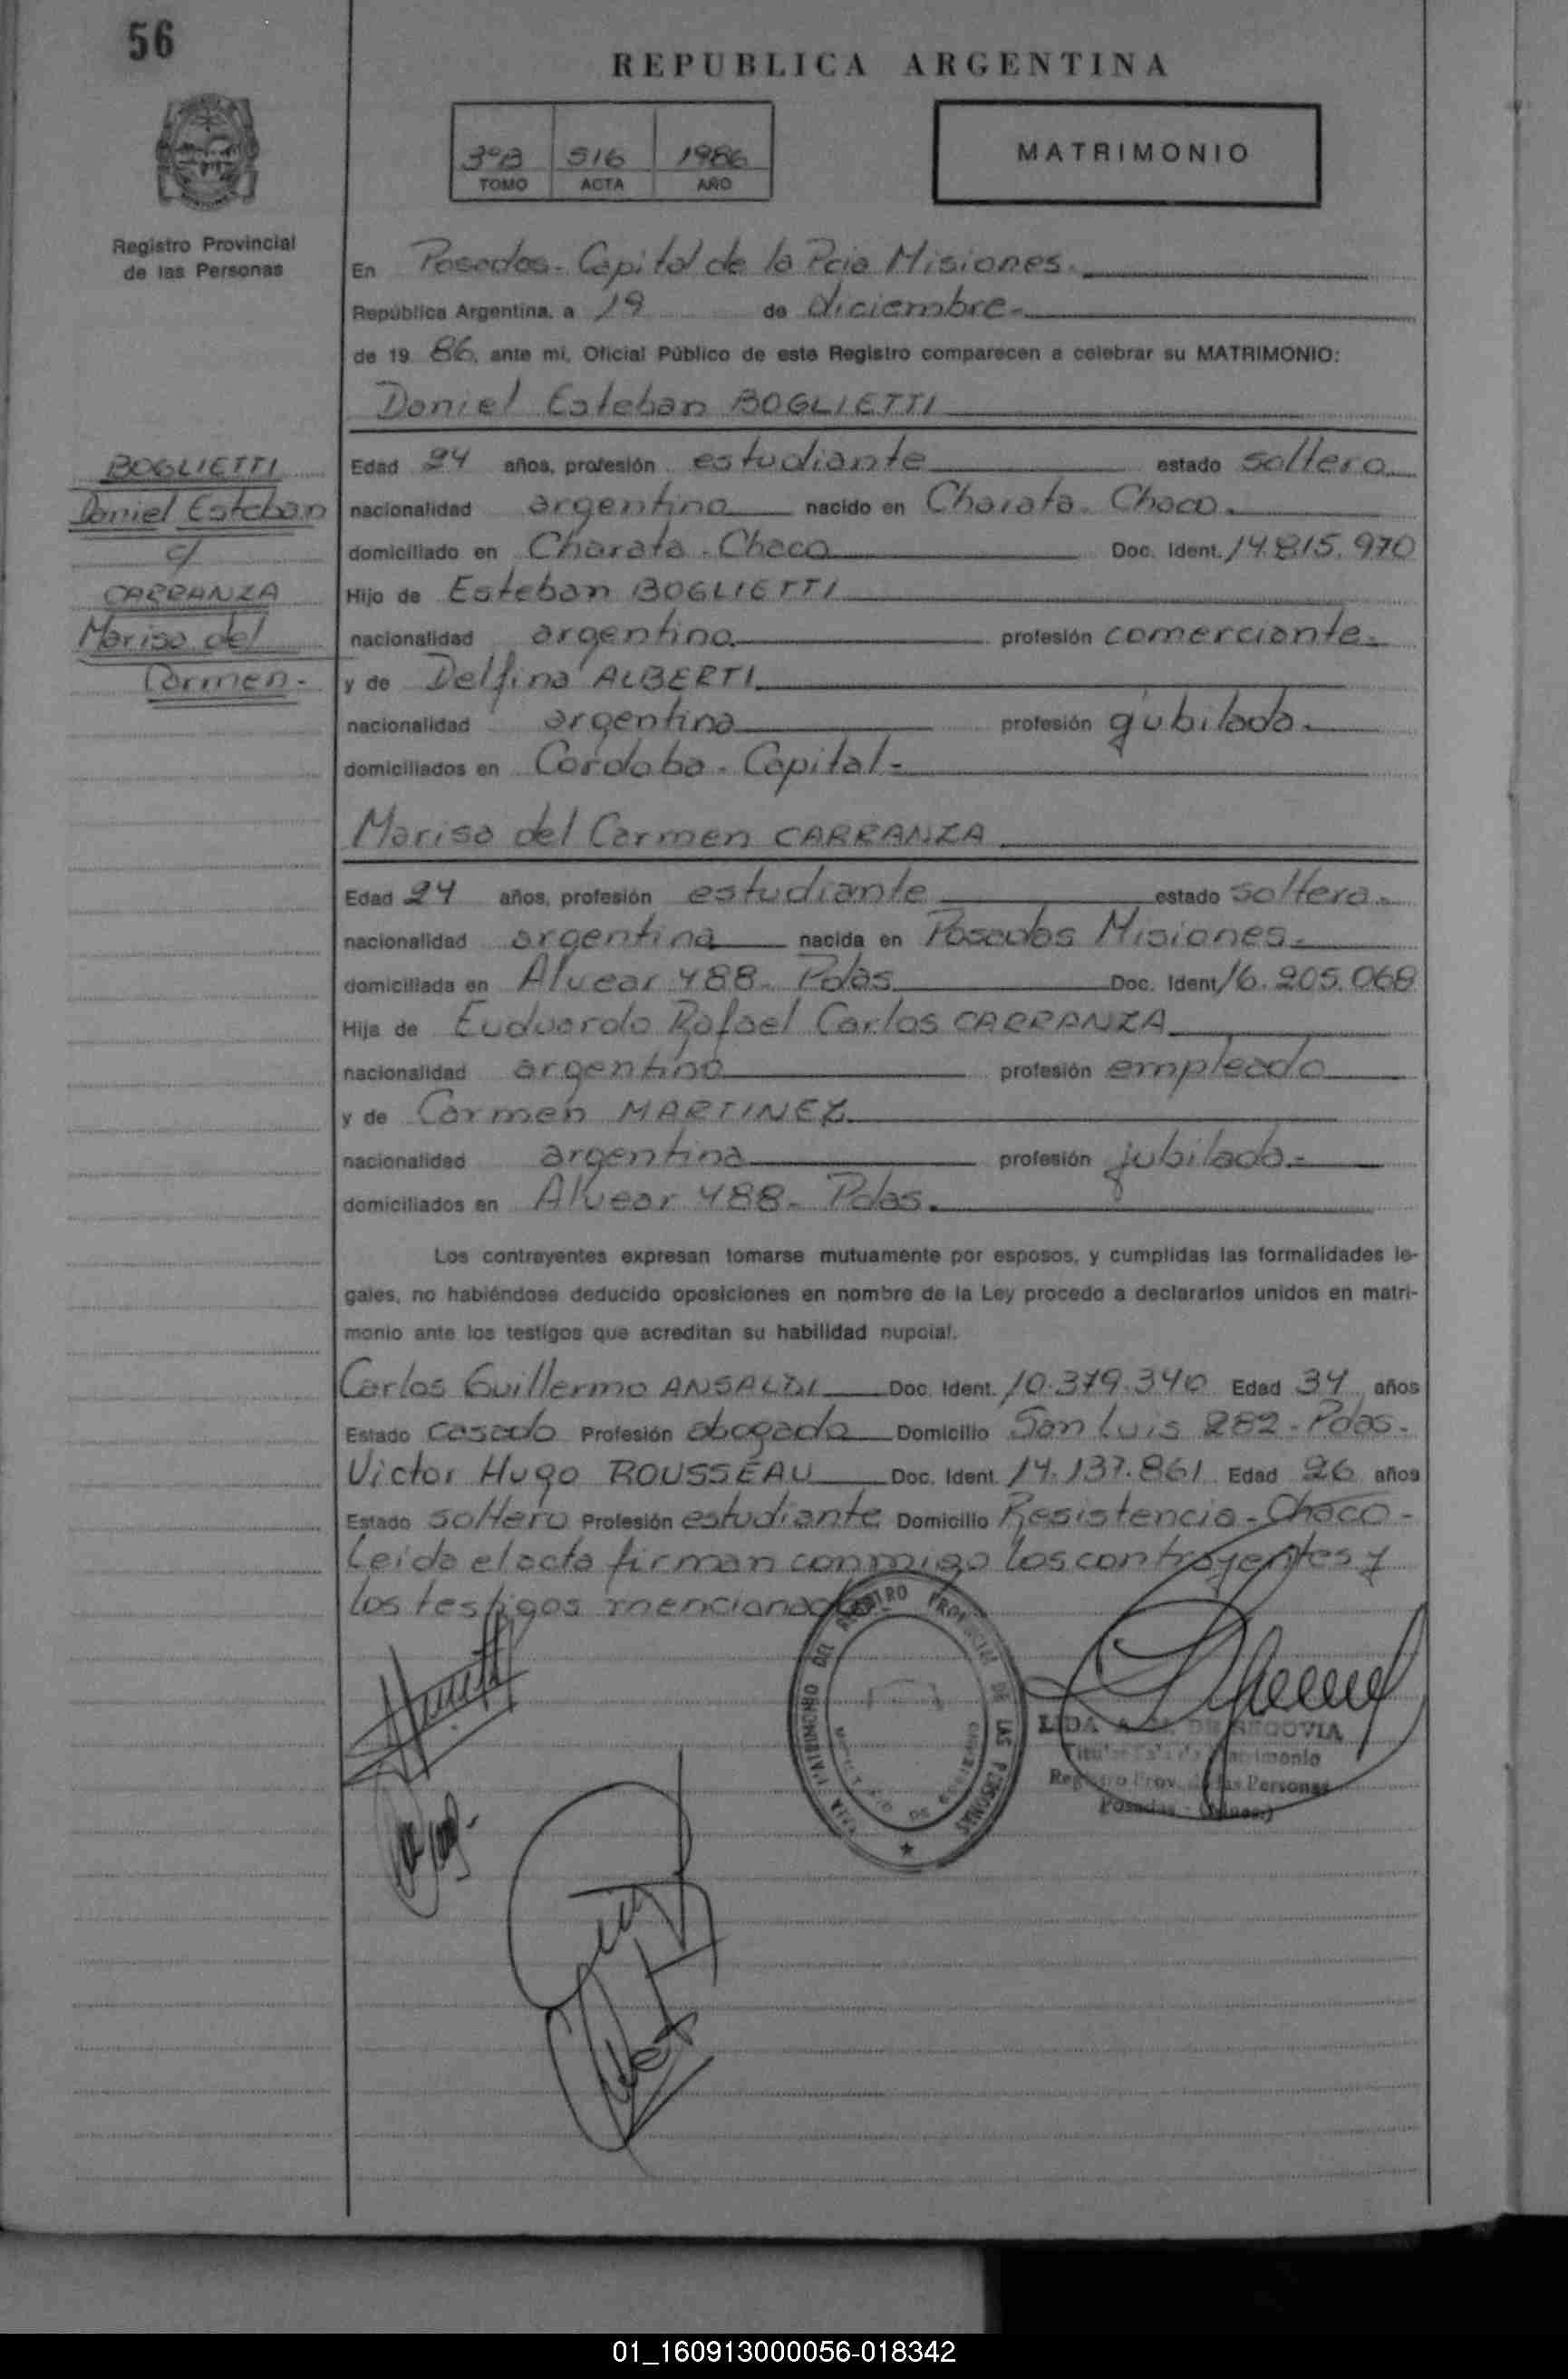 56
REPUBLICA ARGENTINA
3ºB 516 1986
TOMO ACTA AÑO
MATRIMONIO
Registro Provincial
de las Personas
En Posadas - Capital de la Pcia Misiones.
República Argentina, a 19 de diciembre.-
de 19 86, ante mi, Oficial Público de este Registro comparecen a celebrar su MATRIMONIO:
Daniel Esteban BOGLIETTI
BOGLIETTI
Daniel Esteban
c/
CARRANZA
Marisa del
Carmen.-
Edad 24 años, profesión estudiante estado soltero
nacionalidad argentino nacido en Charata - Chaco.
domiciliado en Charata - Chaco Doc. Ident. 14.815.970
Hijo de Esteban BOGLIETTI
nacionalidad argentino. profesión comerciante.-
y de Delfina ALBERTI
nacionalidad argentina profesión gubilada.-
domiciliados en Cordoba - Capital.-
Marisa del Carmen CARRANZA
Edad 24 años, profesión estudiante estado soltera.-
nacionalidad argentina nacida en Posadas Misiones.-
domiciliada en Alvear 488 - Pdas. Doc. Ident. 16.205.068
Hija de Euduardo Rafael Carlos CARRANZA
nacionalidad argentino profesión empleado
y de Carmen MARTINEZ
nacionalidad argentina profesión jubilada.-
domiciliados en Alvear 488 - Pdas.
Los contrayentes expresan tomarse mutuamente por esposos, y cumplidas las formalidades le-
gales, no habiéndose deducido oposiciones en nombre de la Ley procedo a declararlos unidos en matri-
monio ante los testigos que acreditan su habilidad nupcial.
Carlos Guillermo ANSALDI Doc. Ident. 10.379.340 Edad 34 años
Estado casado Profesión abogado Domicilio San Luis 282 - Pdas.-
Victor Hugo ROUSSEAU Doc. Ident. 14.137.861 Edad 26 años
Estado soltero Profesión estudiante Domicilio Resistencia - Chaco -
Leida el acta firman conmigo los contrayentes y
los testigos mencionados.-
DEL REGISTRO PROVINCIAL DE LAS PERSONAS
LIDA A. DE SEGOVIA
Titular Sala de Matrimonio
Registro Prov. de las Personas
Posadas - (Mnes.)
01_160913000056-018342